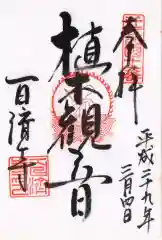 奉拝
平成二十九年
三月四日
植木観音
百済寺